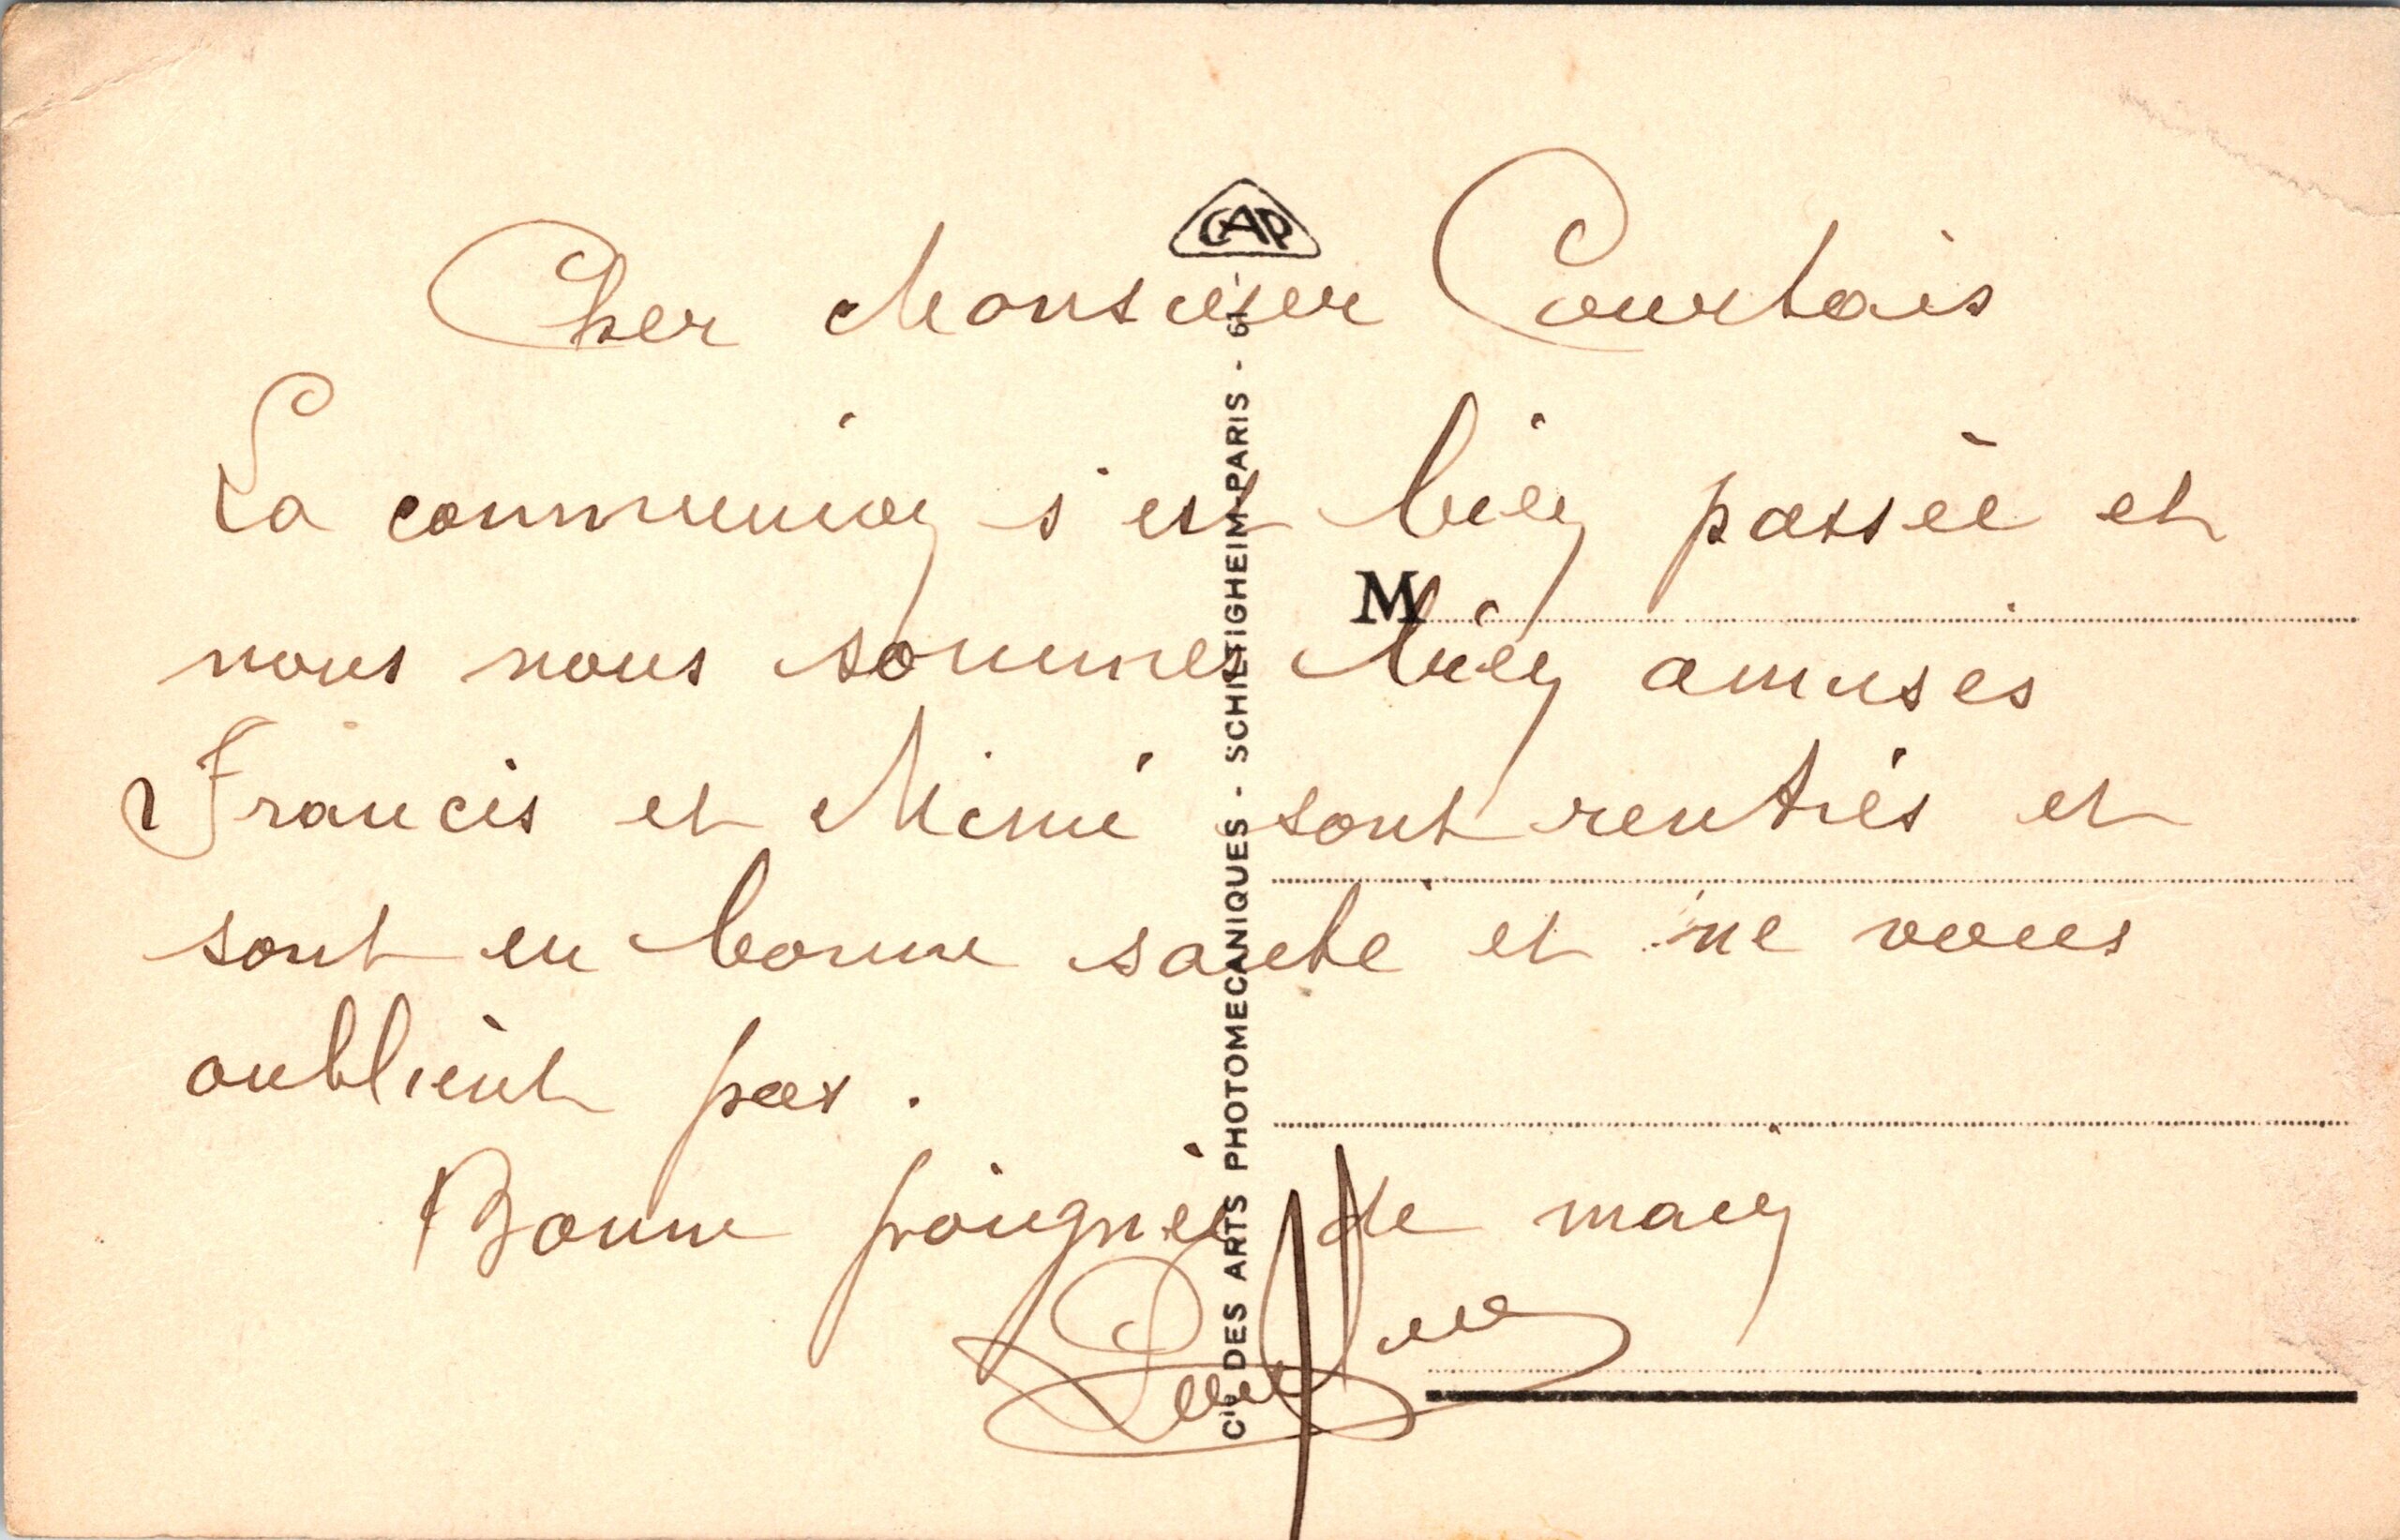 CAP
Cher Monsieur Courtois
La communion s'est bien passée et
nous nous sommes bien amuses
Francis et Mimi sont rentrés et
sont en bonne santé et ne vous
oublient pas.
Bonne poignée de main
M
CIE DES ARTS PHOTOMECANIQUES - SCHILTIGHEIM-PARIS - 61